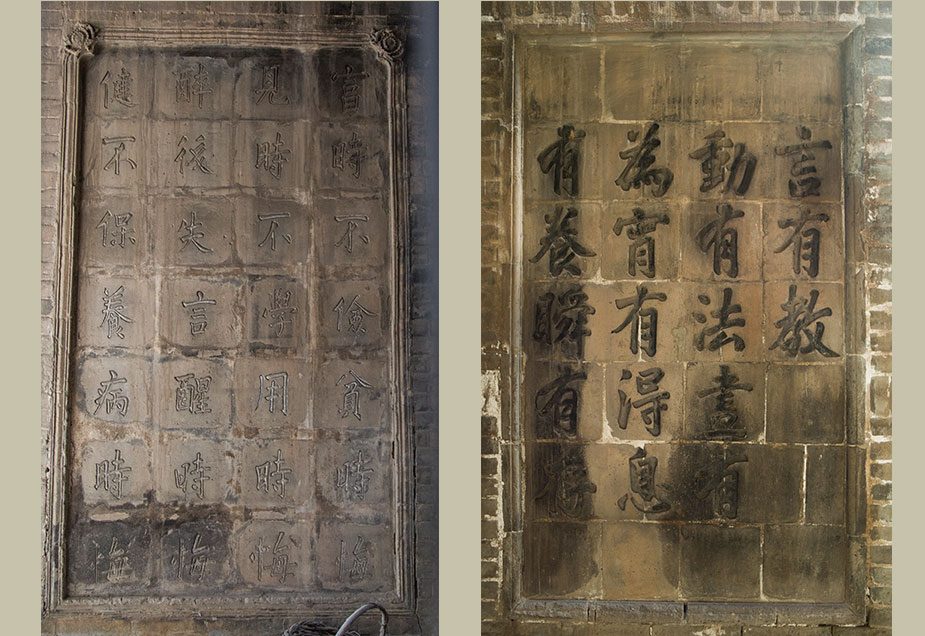 富時不儉貧時悔
見時不學用時悔
醉後失言醒時悔
健不保養病時悔
言有教
動有法晝有
為宵有得息
有養瞬有